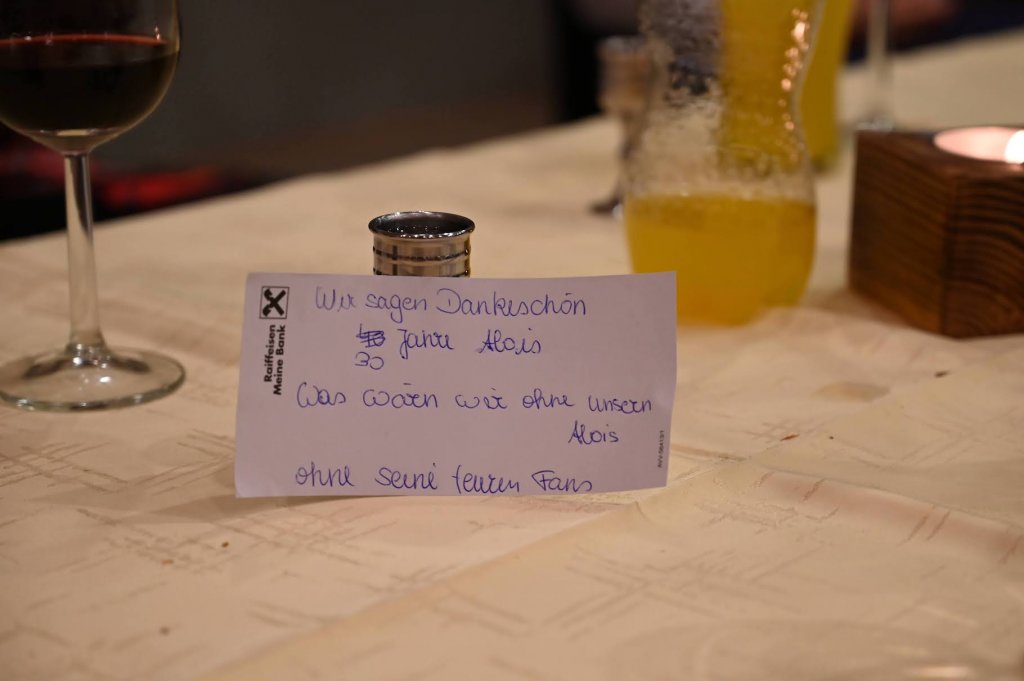 Raiffeisen
Meine Bank
Wir sagen Dankeschön
Jahre Alois
30
Was wären wir ohne unsern
Alois
ohne seine teuren Fans